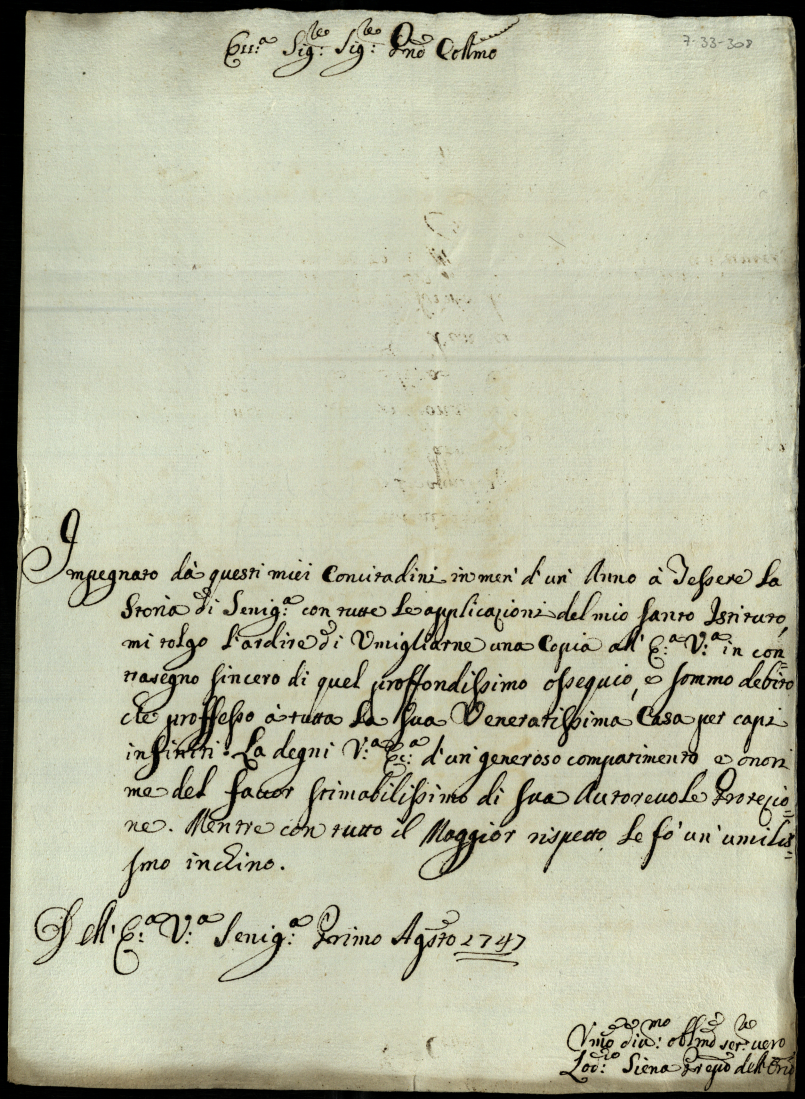 7-33-308
Ecc.ª Sig.re Sig.re Pne Collmo
Impegnato dà questi miei Concitadini in men' d'un' Anno à Tessere la
Storia di Senig.ª con tutte le applicazioni del mio santo Istituto,
mi tolgo l'ardire di Umigliarne una Copia all' E.ª V.ª in con=
trasegno sincero di quel proffondissimo ossequio, e sommo debito
che proffesso à tutta la sua Veneratissima Casa per capi
infiniti. La degni V.ª Ec.ª d'un' generoso compatimento e onori
me del favor stimabilissimo di sua Autorevole Protezio=
ne. Mentre con tutto il Maggior rispetto le fò un' umilis=
simo inchino.
Dell' E.ª V.ª Senig.ª Primo Agsto 1747
Vmo div.mo obblmo ser.re vero
Lod.co Siena Prepto dell'